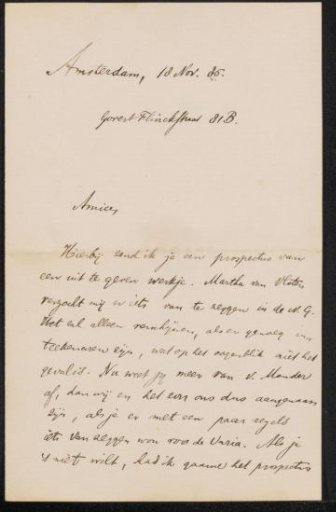 Amsterdam, 18 Nov. 85.
Govert Flinckstraat 81B.
Amice,
Hierbij zend ik je een prospectus van
een uit te geven werkje. Martha van Vloten
verzocht mij er iets van te zeggen in de N. G.
Het zal alleen verschijnen, als er genoeg
teekenaren zijn, wat op het oogenblik niet het
geval is. Nu weet jij meer van v. Mander
af, dan wij en het zou ons dus aangenaam
zijn, als je er met een paar regels
iets van zeggen wou voor de Varia. Als je
't niet wilt, had ik gaarne het prospectus